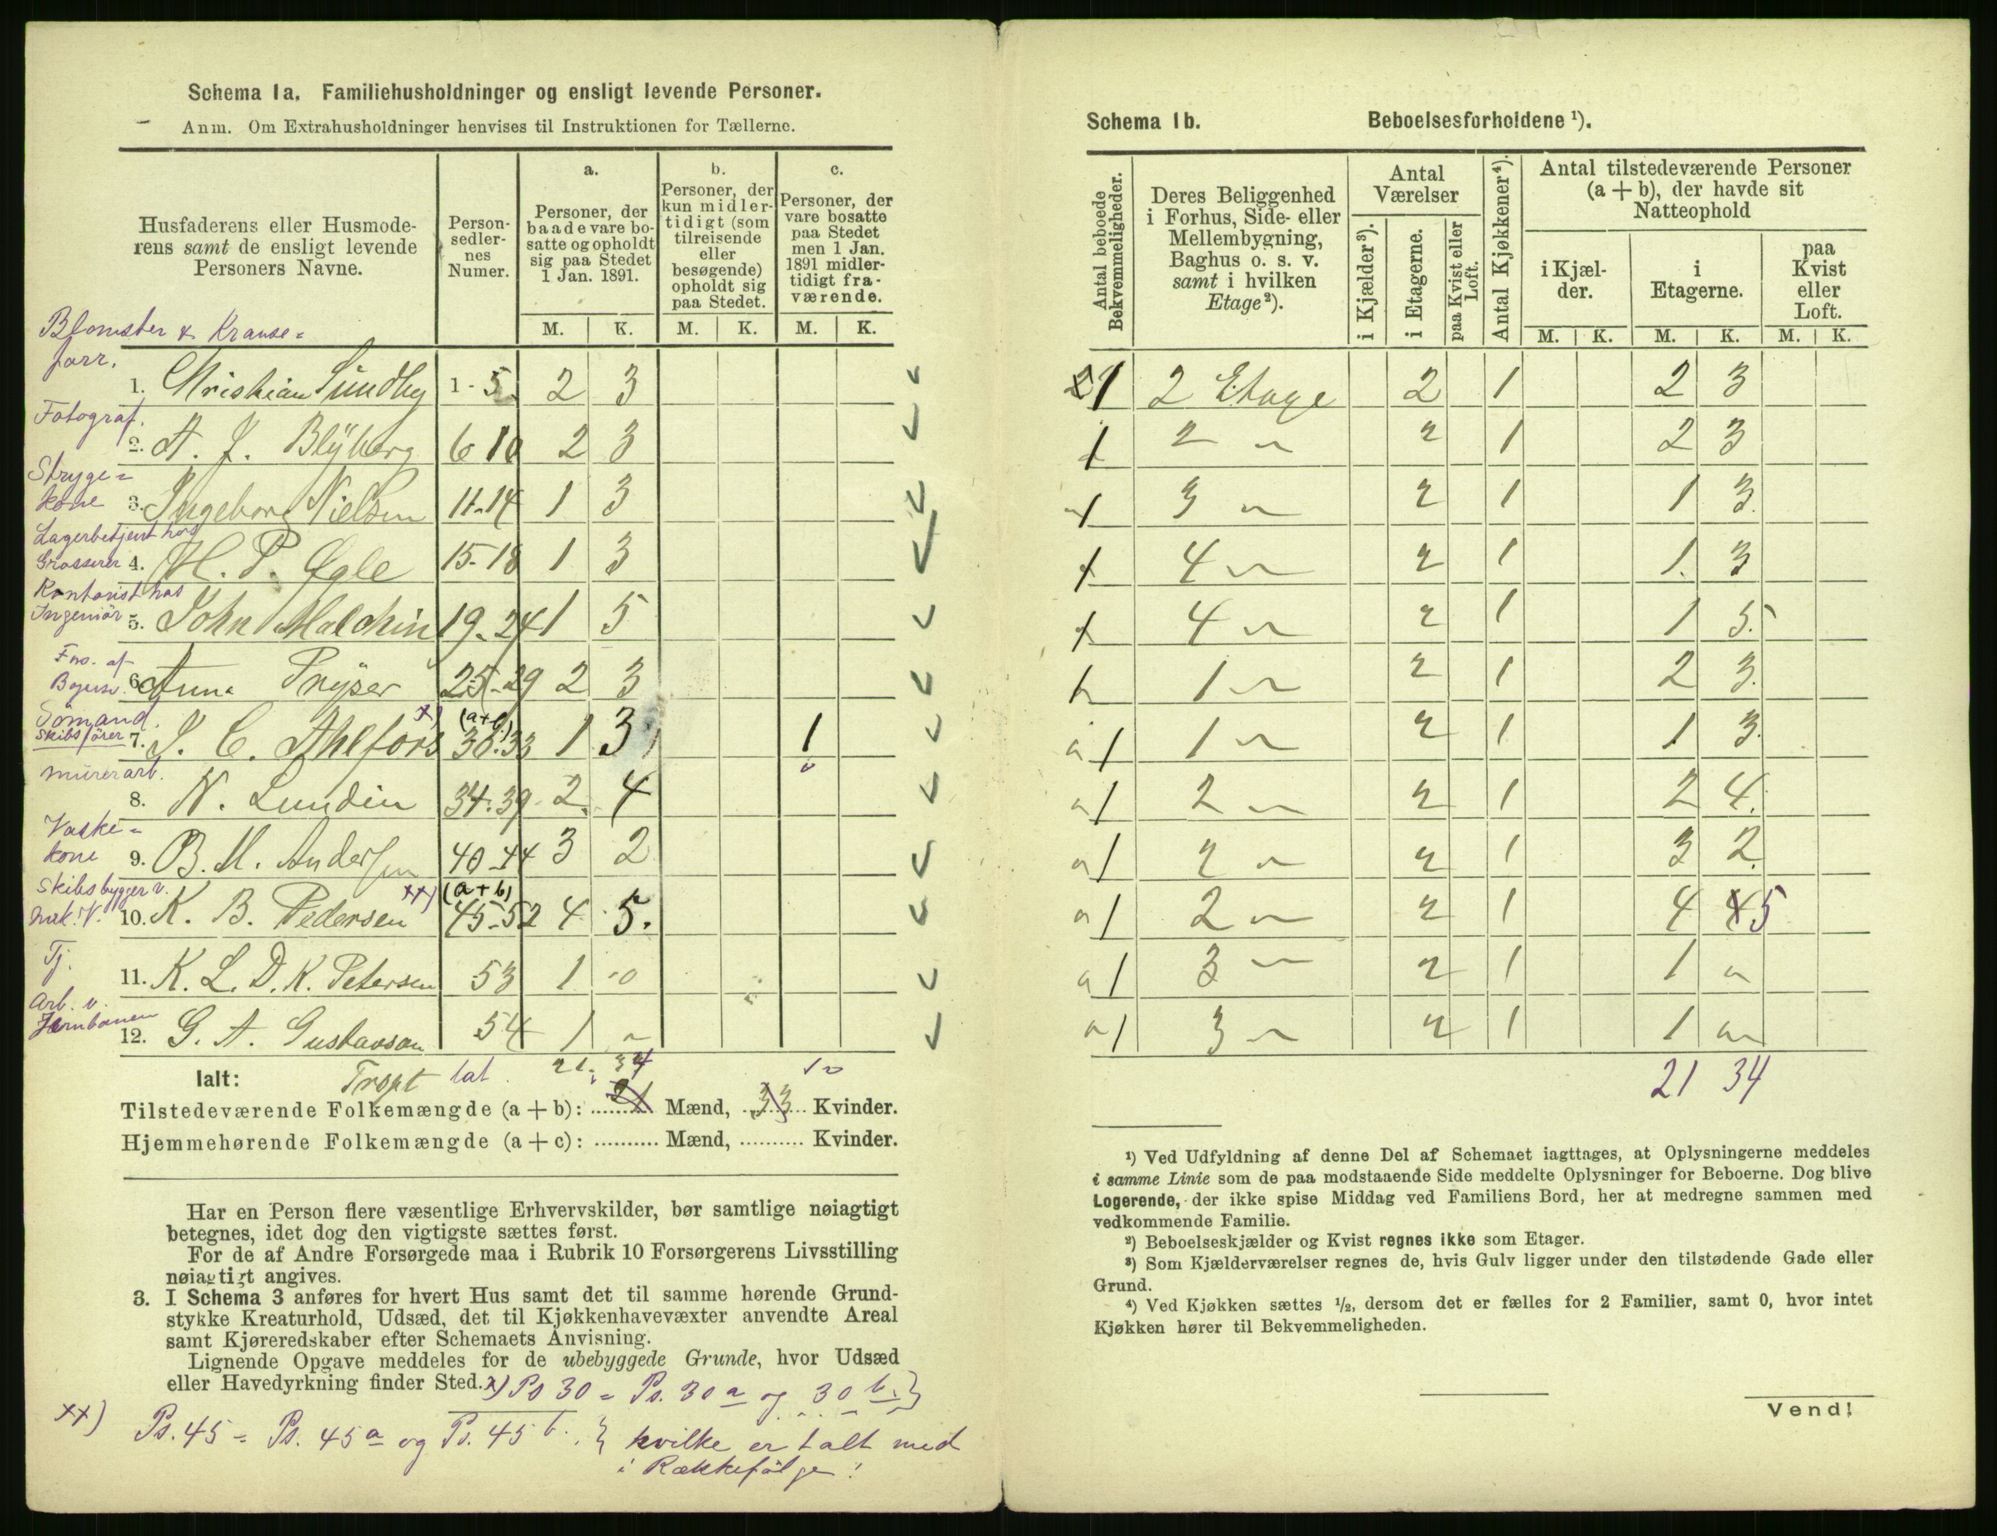 Schema 1a. Familiehusholdninger og ensligt levende Personer.
Anm. Om Extrahusholdninger henvises til Instruktionen for Tællerne.
Husfaderens eller Husmode-
rens samt de ensligt levende
Personers Navne.
Person-
sedler-
nes
Numer.
a.
Personer, der
baade vare bo-
satte og opholdt
sig paa Stedet
1 Jan. 1891.
b.
Personer, der
kun midler-
tidigt (som
tilreisende
eller
besøgende)
opholdt sig
paa Stedet.
c.
Personer, der
vare bosatte
paa Stedet
men 1 Jan.
1891 midler-
tidigt fra-
værende.
M. K. M. K. M. K.
Blomster & Kranse=
forr.
1. Christian Sundby 1-5 2 3
Fotograf.
2. A. J. Blÿberg 6 10 2 3
Stryge=
kone 3. Ingeborg Nielsen 11-14 1 3
Lagerbetjent hos
Grosserer 4. H. P. Øgle 15-18 1 3
Kontorist hos
Ingeniör 5. John Malchin 19-24 1 5
Fns. af
6. Anna Prÿser 25-29 2 3
Sömand.
Skibsförer 7. J. C. Ahlfors x) (a+b) 30-33 1 3 1
Murerarb.
8. N. Lundin 34-39 2 4
Vaske=
kone 9. B. M. Andersen 40-44 3 2
Skibsbygger v.
mek. V. 10. K. B. Pedersen xx) (a+b) 45-52 4 5.
Tj.
11. K. L. D. K. Petersen 53 1 -0
Arb. v.
Jernbanen
12. G. A. Gustavson 54 1 -
Ialt: Tropt tat. 21. 34 1 -
Tilstedeværende Folkemængde (a + b): 21 Mænd, 33 Kvinder.
Hjemmehørende Folkemængde (a + c): .......... Mænd, .......... Kvinder.
Har en Person flere væsentlige Erhvervskilder, bør samtlige nøiagtigt
betegnes, idet dog den vigtigste sættes først.
For de af Andre Forsørgede maa i Rubrik 10 Forsørgerens Livsstilling
nøiagtigt angives.
3. I Schema 3 anføres for hvert Hus samt det til samme hørende Grund-
stykke Kreaturhold, Udsæd, det til Kjøkkenhavevæxter anvendte Areal
samt Kjøreredskaber efter Schemaets Anvisning.
Lignende Opgave meddeles for de ubebyggede Grunde, hvor Udsæd
eller Havedyrkning finder Sted. x) Ps 30 = Ps. 30 a og 30 b. }
xx) Ps. 45 = Ps. 45 a og Ps. 45 b. } hvilke er talt med
i Rækkefölge!
Schema 1b. Beboelsesforholdene ¹).
Antal beboede
Bekvemmeligheder.
Deres Beliggenhed
i Forhus, Side- eller
Mellembygning,
Baghus o. s. v.
samt i hvilken
Etage ²).
Antal
Værelser
i Kjælder ³).
i Etagerne.
paa Kvist eller
Loft.
Antal Kjøkkener ⁴).
Antal tilstedeværende Personer
(a + b), der havde sit
Natteophold
i Kjæl-
der.
i
Etagerne.
paa
Kvist
eller
Loft.
M. K. M. K. M. K.
1 2 Etage 2 1 2 3
1 2 〃 2 1 2 3
1 3 〃 2 1 1 3.
1 4 〃 2 1 1. 3
1 4 〃 2 1 1 5.
1 1 〃 2 1 2 3.
a 1 1 〃 2 1 1 3.
a 1 2 〃 2 1 2 4.
a 1 2 〃 2 1 3 2.
a 1 2 〃 2 1 4 4 5
a 1 3 〃 2 1 1 〃
a 1 3 〃 2 1 1 〃
21 34
¹) Ved Udfyldning af denne Del af Schemaet iagttages, at Oplysningerne meddeles
i samme Linie som de paa modstaaende Side meddelte Oplysninger for Beboerne. Dog blive
Logerende, der ikke spise Middag ved Familiens Bord, her at medregne sammen med
vedkommende Familie.
²) Beboelseskjælder og Kvist regnes ikke som Etager.
³) Som Kjælderværelser regnes de, hvis Gulv ligger under den tilstødende Gade eller
Grund.
⁴) Ved Kjøkken sættes ¹/₂, dersom det er fælles for 2 Familier, samt 0, hvor intet
Kjøkken hører til Bekvemmeligheden.
Vend!